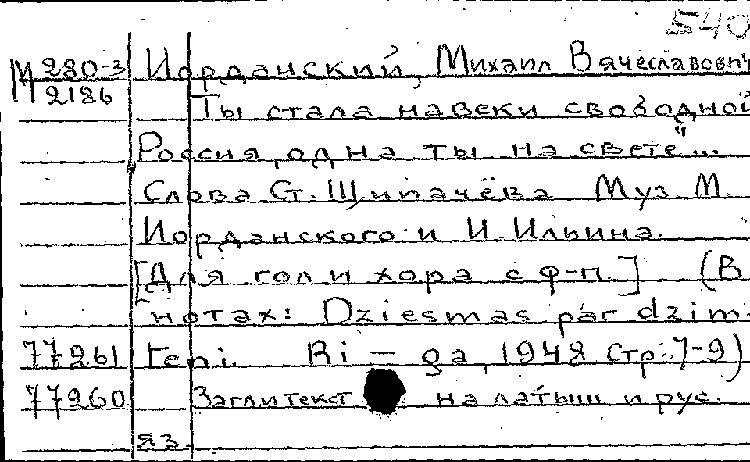 540
М 280-3 Иорданский, Михаил Вячеславович
2186 Ты стала навеки свободной
Россия, одна ты на свете"...
Слова Ст. Щипачёва Муз М.
Иорданского и И. Ильина.
[Для гол и хора с ф-п.] (В
нотах: Dziesmas par dzim-
77261 teni. Ri – ga, 1948 Стр. 7-9)
77260 Загл и текст на латыш и рус.
яз